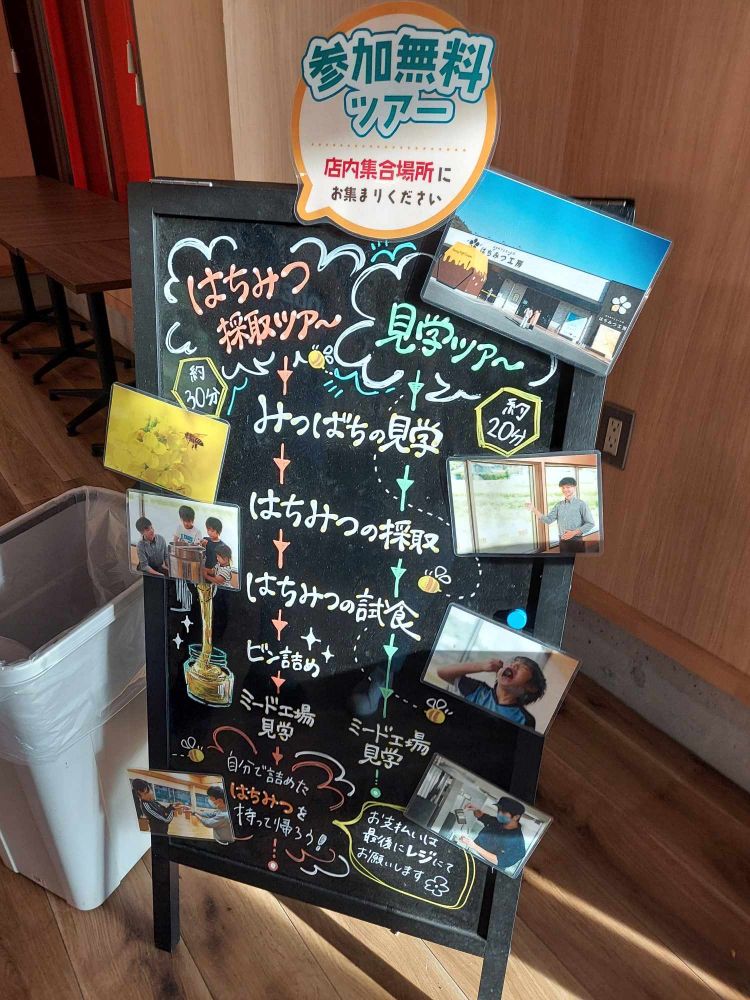 参加無料
ツアー
店内集合場所に
お集まりください
はちみつ工房
はちみつ
採取ツア〜
見学ツア〜
約
30分
約
20分
みつばちの見学
はちみつの採取
はちみつの試食
ビン詰め
ミード工場
見学
ミード工場
見学
自分で詰めた
はちみつを
持って帰ろう!
お支払いは
最後にレジにて
お願いします